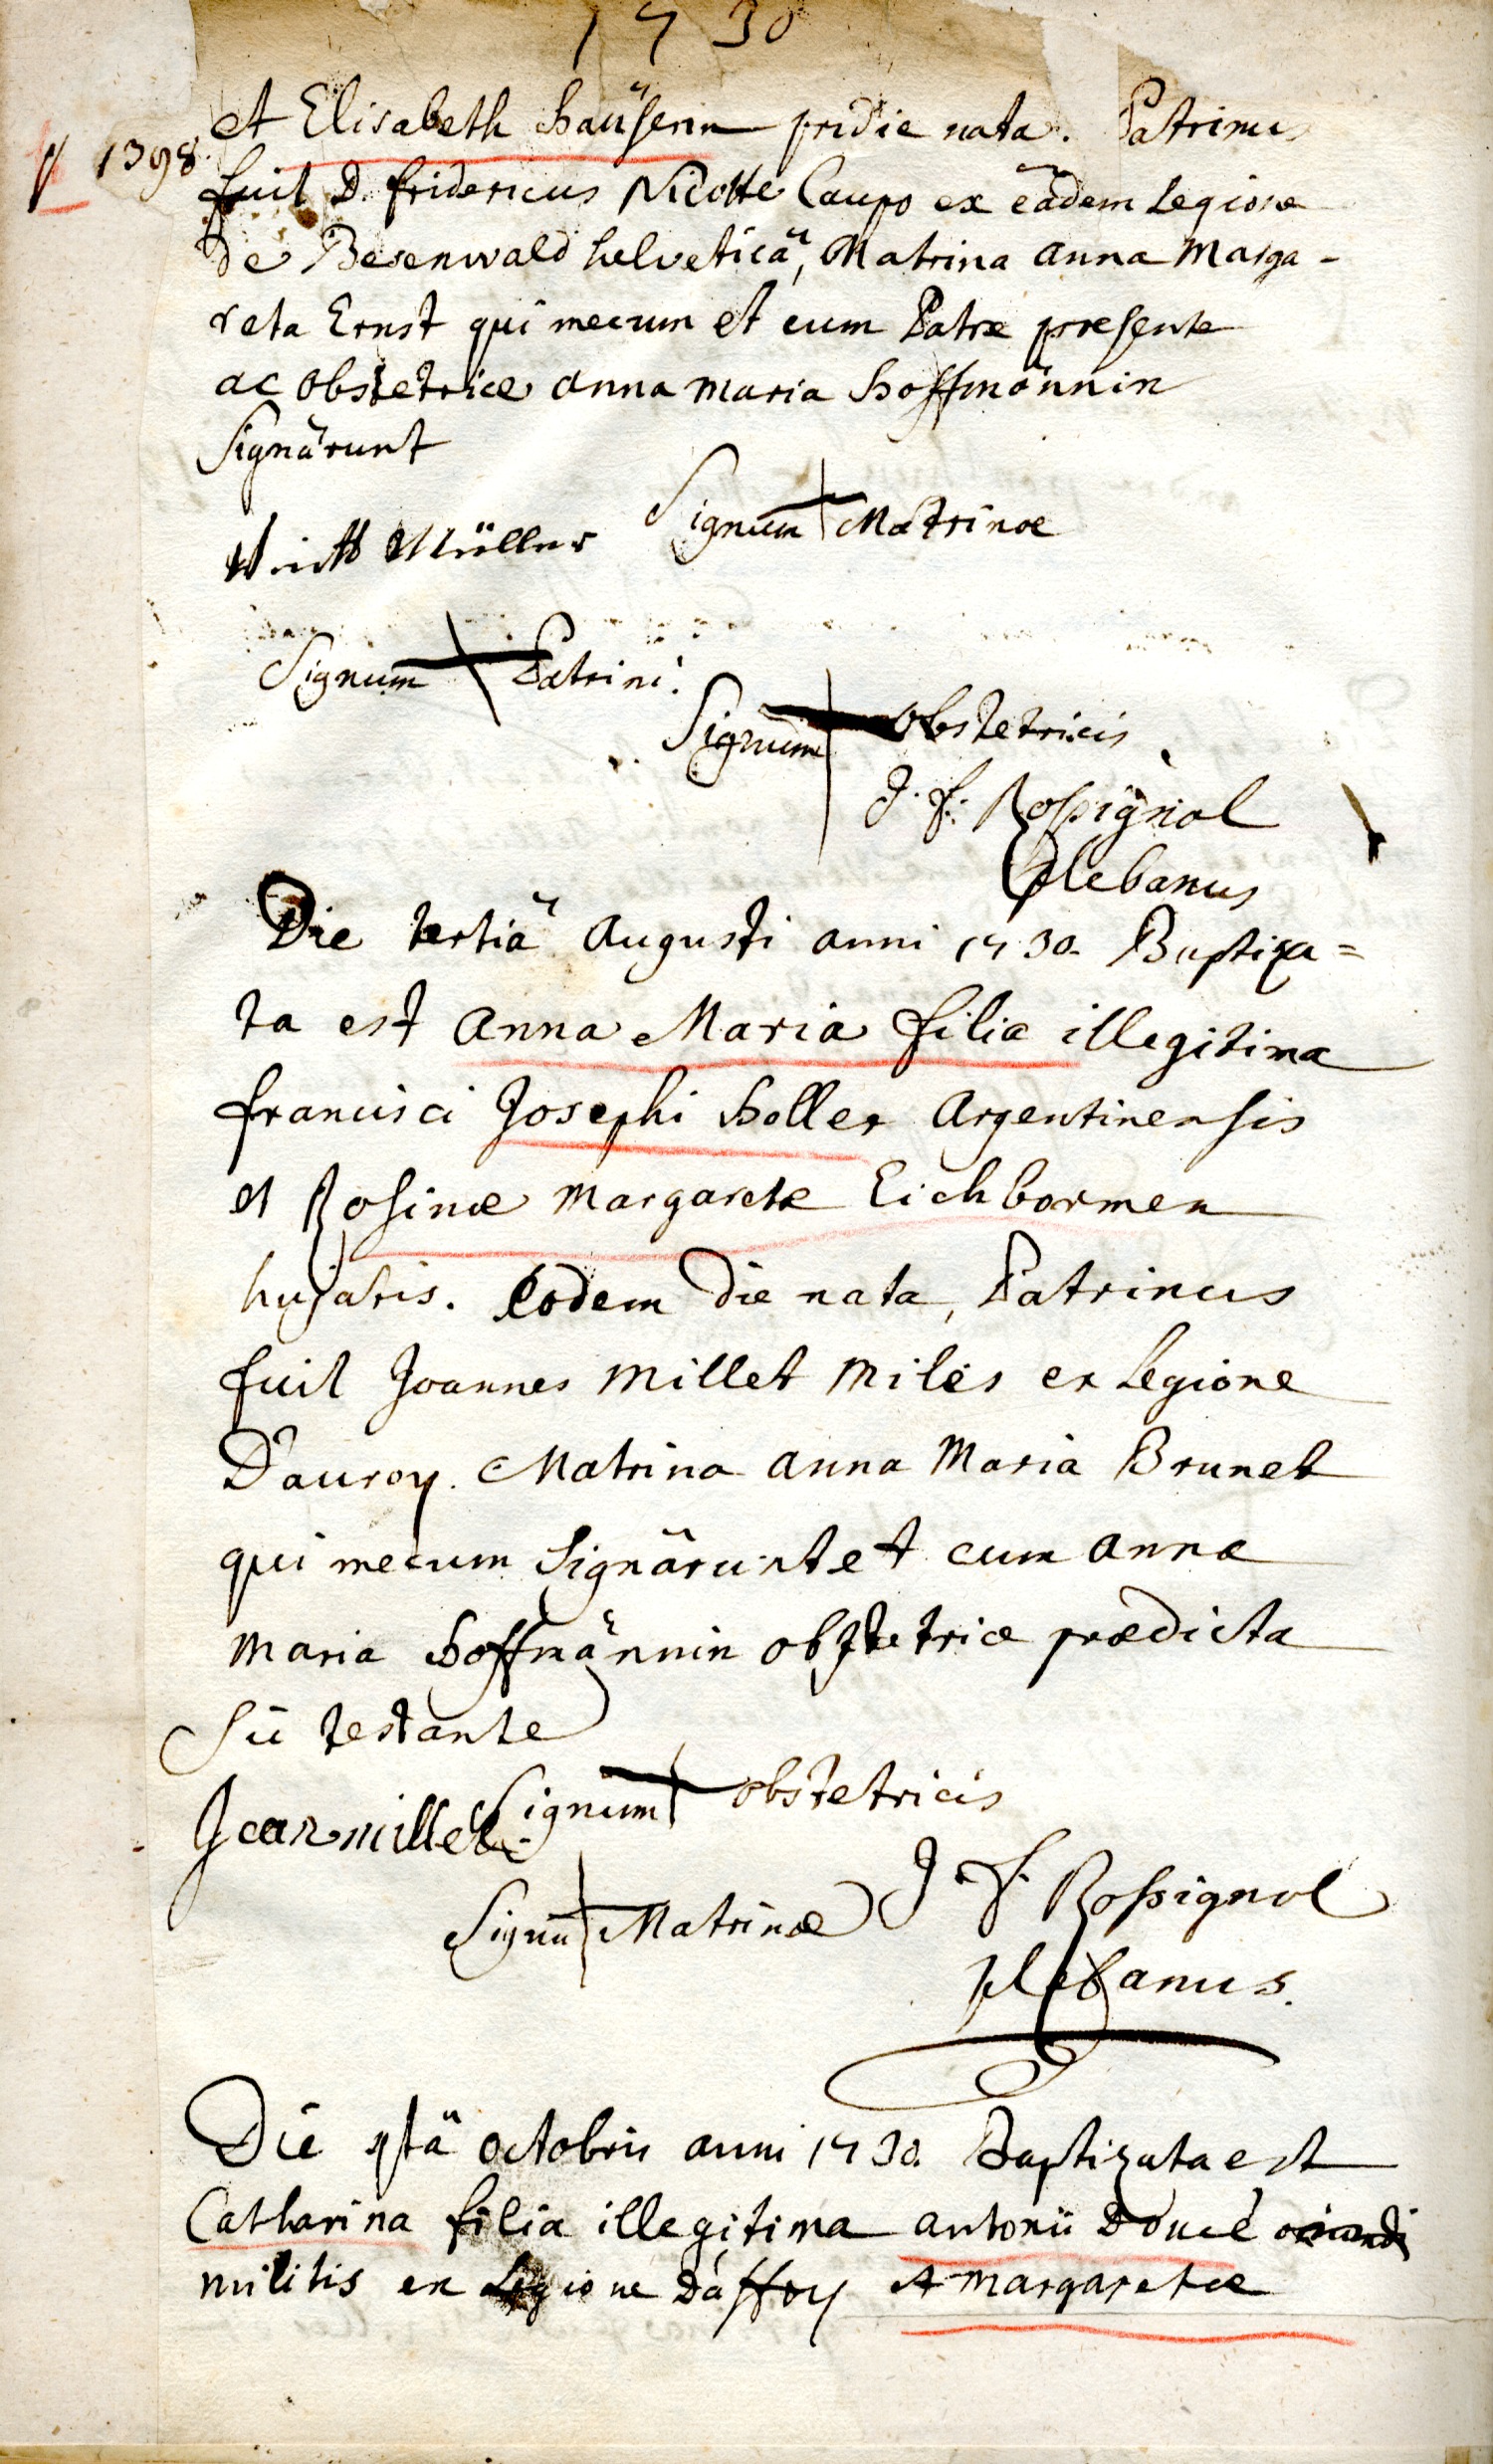 1730
et Elisabeth Haüserin pridie nata. Patrinus
1398.
fuit D. fridericus Nicolle Caupo ex eâdem Legione
de Besenwald helveticâ, Matrina anna Marga-
reta Ernst qui mecum et cum Patre præsente
ac obstetrice anna maria Hoffmännin
signârunt
Müller Signum Matrinæ
Signum Patrini.
Signum obstetricis
J. f. Rossignol
Plebanus
Die tertiâ Augusti anni 1730. Baptiza=
ta est anna Maria filia illegitima
francisci Josephi Holler Argentinensis
et Rosinæ margaretæ Eichbormen
hujatis. Eodem die nata, Patrinus
fuit Joannes Millet Miles ex Legione
D'auroy. Matrina anna Maria Brunet
qui mecum signârunt et cum anna
maria Hoffmännin obstetrice prædicta
sic testante
Jean millet Signum obstetricis
Signum Matrinæ J f. Rossignol
plebanus.
Die 4tâ octobris anni 1730. Baptizata est
Catharina filia illegitima antonii Doucé
militis ex Legione Daffry et margaretæ